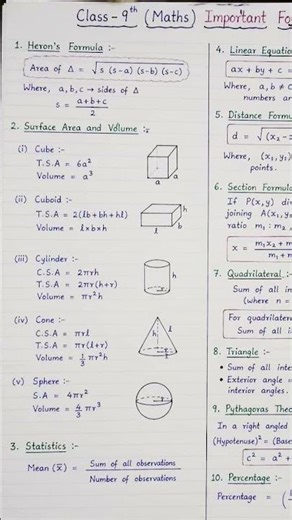 Class - 9th (Maths) Important Fo
1. Heron's Formula :-
Area of Δ = √s (s-a) (s-b) (s-c)
Where, a, b, c → sides of Δ
s = a+b+c / 2
2. Surface Area and Volume :-
(i) Cube :-
T.S.A = 6a²
Volume = a³
a
a
(ii) Cuboid :-
T.S.A = 2(lb + bh + hl)
Volume = l x b x h
h
b
l
(iii) Cylinder :-
C.S.A = 2πrh
T.S.A = 2πr(h+r)
Volume = πr²h
h
(iv) Cone :-
C.S.A = πrl
T.S.A = πr(l+r)
Volume = 1/3 πr²h
h
l
r
(v) Sphere :-
S.A = 4πr²
Volume = 4/3 πr³
3. Statistics :-
Mean (x̄) = Sum of all observations / Number of observations
4. Linear Equatio
ax + by + c =
Where, a, b ≠ 
numbers ar
5. Distance Formu
d = √(x₂ -
Where, (x₁, y₁)
points.
6. Section Formula
If P(x, y) div
joining A(x₁, y
ratio m₁ : m₂
x = m₁x₂ + m / m₁ + m
7. Quadrilateral :-
Sum of all in
(where n =
For quadrilater
Sum of all i
8. Triangle :-
• Sum of all inte
• Exterior angle =
interior angles.
9. Pythagoras Theo
In a right angled
(Hypotenuse)² = (Base
c² = a² +
10. Percentage :-
Percentage = (